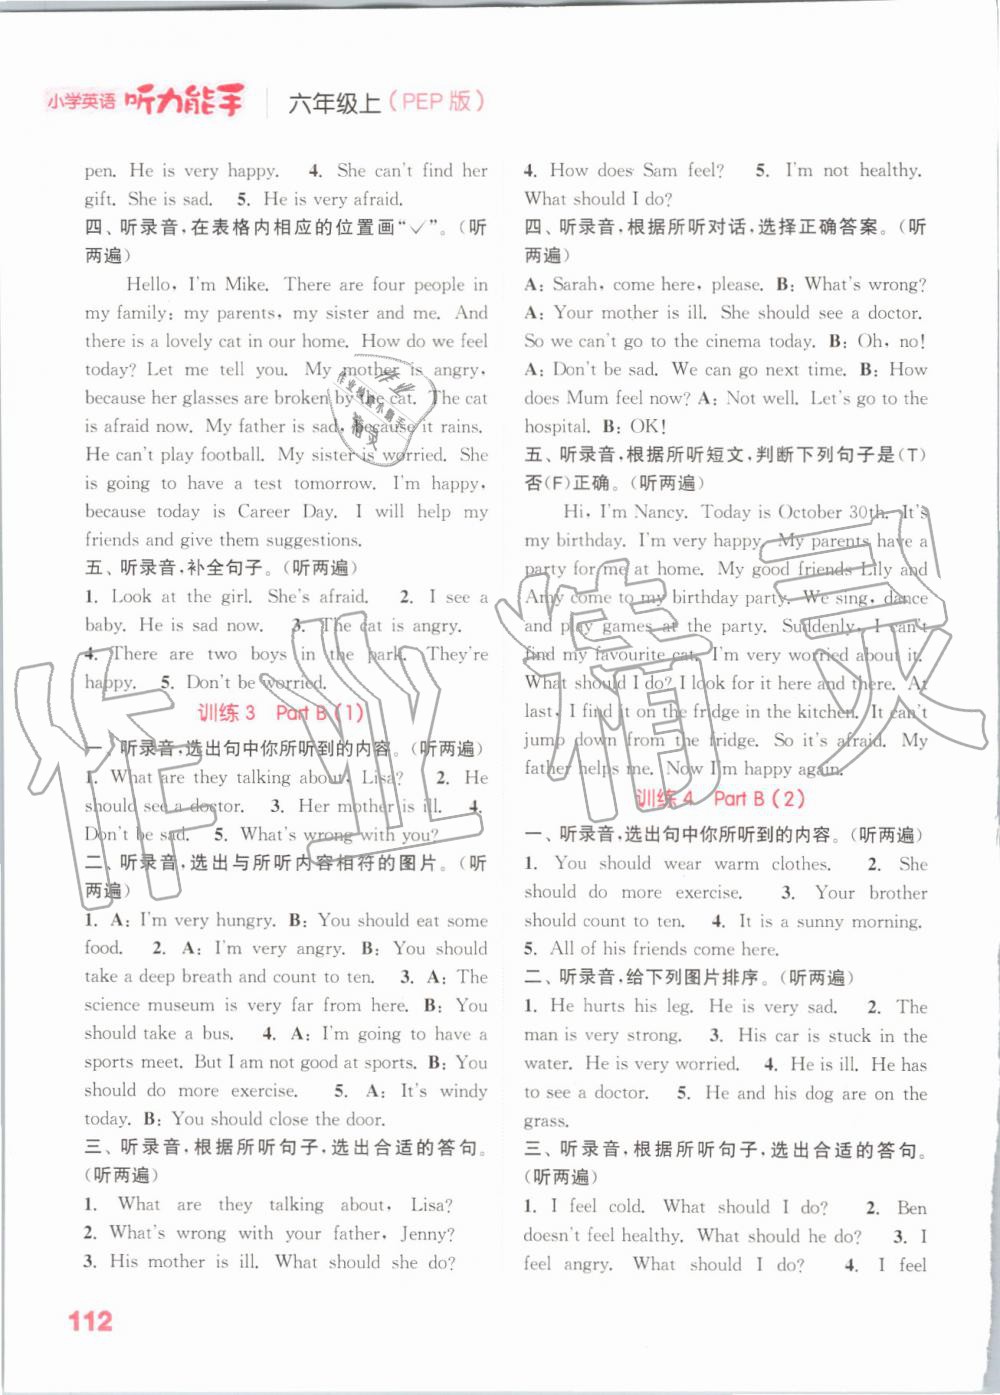 小学英语 听力能手 六年级上(PEP版)
pen. He is very happy. 4. She can't find her
gift. She is sad. 5. He is very afraid.
四、听录音,在表格内相应的位置画“✓”。(听
两遍)
Hello, I'm Mike. There are four people in
my family: my parents, my sister and me. And
there is a lovely cat in our home. How do we feel
today? Let me tell you. My mother is angry,
because her glasses are broken by the cat. The cat
is afraid now. My father is sad, because it rains.
He can't play football. My sister is worried. She
is going to have a test tomorrow. I'm happy,
because today is Career Day. I will help my
friends and give them suggestions.
五、听录音,补全句子。(听两遍)
1. Look at the girl. She's afraid. 2. I see a
baby. He is sad now. 3. The cat is angry.
4. There are two boys in the park. They're
happy. 5. Don't be worried.
训练3 Part B(1)
一、听录音,选出句中你所听到的内容。(听两遍)
1. What are they talking about, Lisa? 2. He
should see a doctor. 3. Her mother is ill. 4.
Don't be sad. 5. What's wrong with you?
二、听录音,选出与所听内容相符的图片。(听
两遍)
1. A: I'm very hungry. B: You should eat some
food. 2. A: I'm very angry. B: You should
take a deep breath and count to ten. 3. A: The
science museum is very far from here. B: You
should take a bus. 4. A: I'm going to have a
sports meet. But I am not good at sports. B: You
should do more exercise. 5. A: It's windy
today. B: You should close the door.
三、听录音,根据所听句子,选出合适的答句。
(听两遍)
1. What are they talking about, Lisa?
2. What's wrong with your father, Jenny?
3. His mother is ill. What should she do?
4. How does Sam feel? 5. I'm not healthy.
What should I do?
四、听录音,根据所听对话,选择正确答案。(听
两遍)
A: Sarah, come here, please. B: What's wrong?
A: Your mother is ill. She should see a doctor.
So we can't go to the cinema today. B: Oh, no!
A: Don't be sad. We can go next time. B: How
does Mum feel now? A: Not well. Let's go to the
hospital. B: OK!
五、听录音,根据所听短文,判断下列句子是(T)
否(F)正确。(听两遍)
Hi, I'm Nancy. Today is October 30th. It's
my birthday. I'm very happy. My parents have a
party for me at home. My good friends Lily and
Amy come to my birthday party. We sing, dance
and play games at the party. Suddenly, I can't
find my favourite cat. I'm very worried about it.
What should I do? I look for it here and there. At
last, I find it on the fridge in the kitchen. It can't
jump down from the fridge. So it's afraid. My
father helps me. Now I'm happy again.
训练4 Part B(2)
一、听录音,选出句中你所听到的内容。(听两遍)
1. You should wear warm clothes. 2. She
should do more exercise. 3. Your brother
should count to ten. 4. It is a sunny morning.
5. All of his friends come here.
二、听录音,给下列图片排序。(听两遍)
1. He hurts his leg. He is very sad. 2. The
man is very strong. 3. His car is stuck in the
water. He is very worried. 4. He is ill. He has
to see a doctor. 5. He and his dog are on the
grass.
三、听录音,根据所听句子,选出合适的答句。
(听两遍)
1. I feel cold. What should I do? 2. Ben
doesn't feel healthy. What should he do? 3. I
feel angry. What should I do? 4. I feel
112
作业精灵